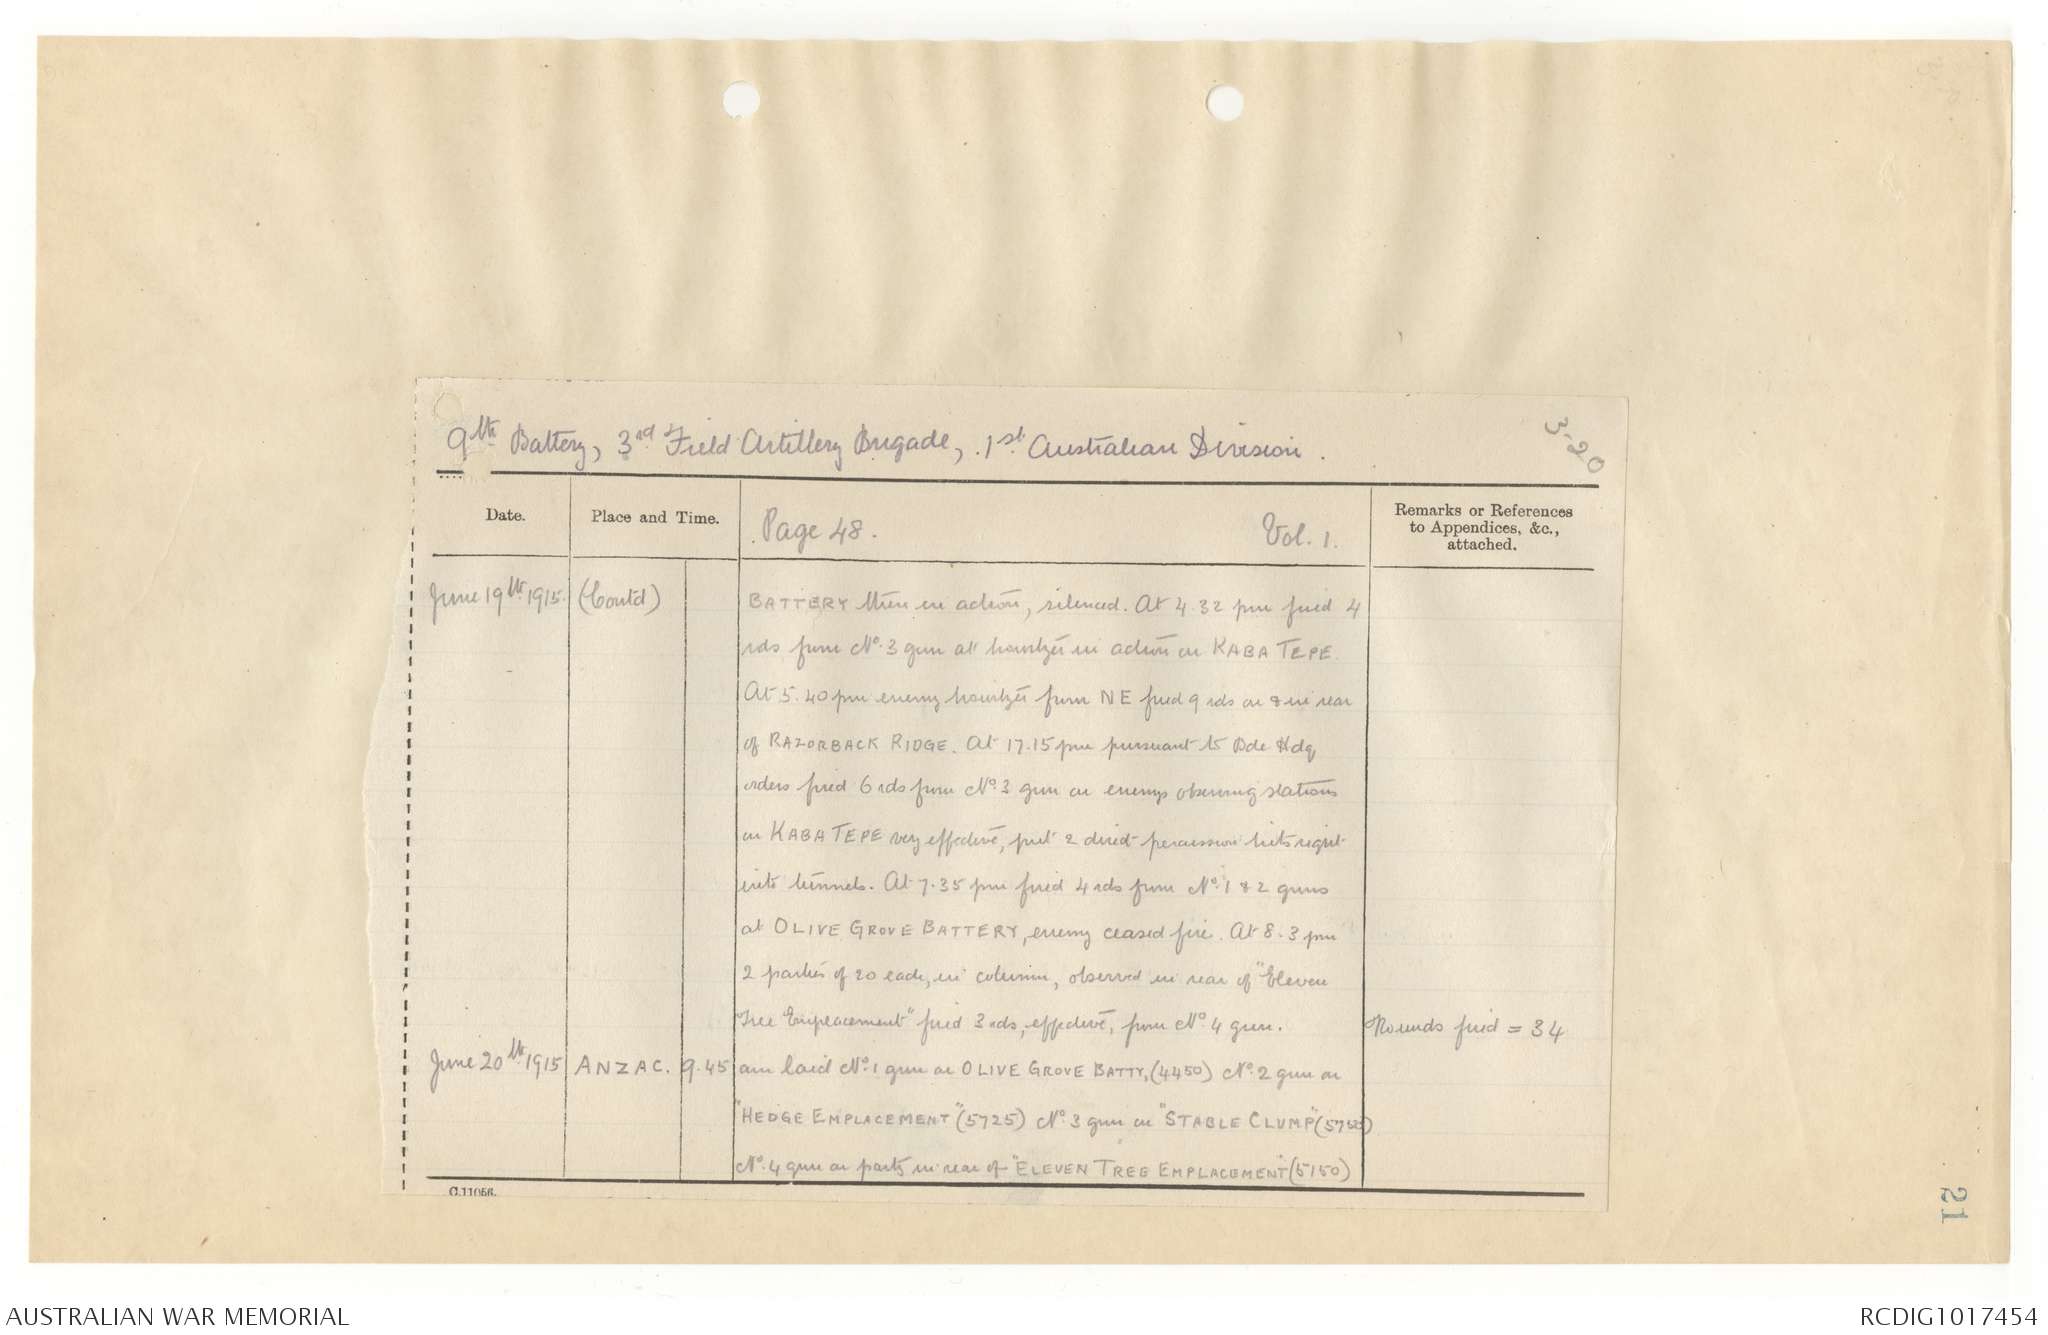 9th Battery, 3rd Field Artillery Brigade, 1st Australian Division.
3-20
Date.
Place and Time.
Page 48.
Vol. 1.
Remarks or References
to Appendices, &c.,
attached.
June 19th 1915. (Contd) BATTERY then in action, silenced. At 4.32 pm fired 4
rds from No. 3 gun at howitzer in action on KABA TEPE.
At 5.40 pm enemy howitzer from NE fired 9 rds on & in rear
of RAZORBACK RIDGE. At 17.15 pm pursuant to Bde Hdq
orders fired 6 rds from No. 3 gun on enemys observing stations
on KABA TEPE very effective, put 2 direct percussion hits right
into tunnels. At 7.35 pm fired 4 rds from No. 1 & 2 guns
at OLIVE GROVE BATTERY, enemy ceased fire. At 8.3 pm
2 parties of 20 each, in column, observed in rear of "Eleven
Tree Emplacement" fired 3 rds, effective, from No. 4 gun. Rounds fired = 34
June 20th 1915 ANZAC. 9.45 am laid No. 1 gun on OLIVE GROVE BATTY, (4450) No. 2 gun on
"HEDGE EMPLACEMENT" (5725) No. 3 gun on "STABLE CLUMP"
No. 4 gun on party in rear of "ELEVEN TREE EMPLACEMENT" (5150)
C.11056.
51
AUSTRALIAN WAR MEMORIAL
RCDIG1017454